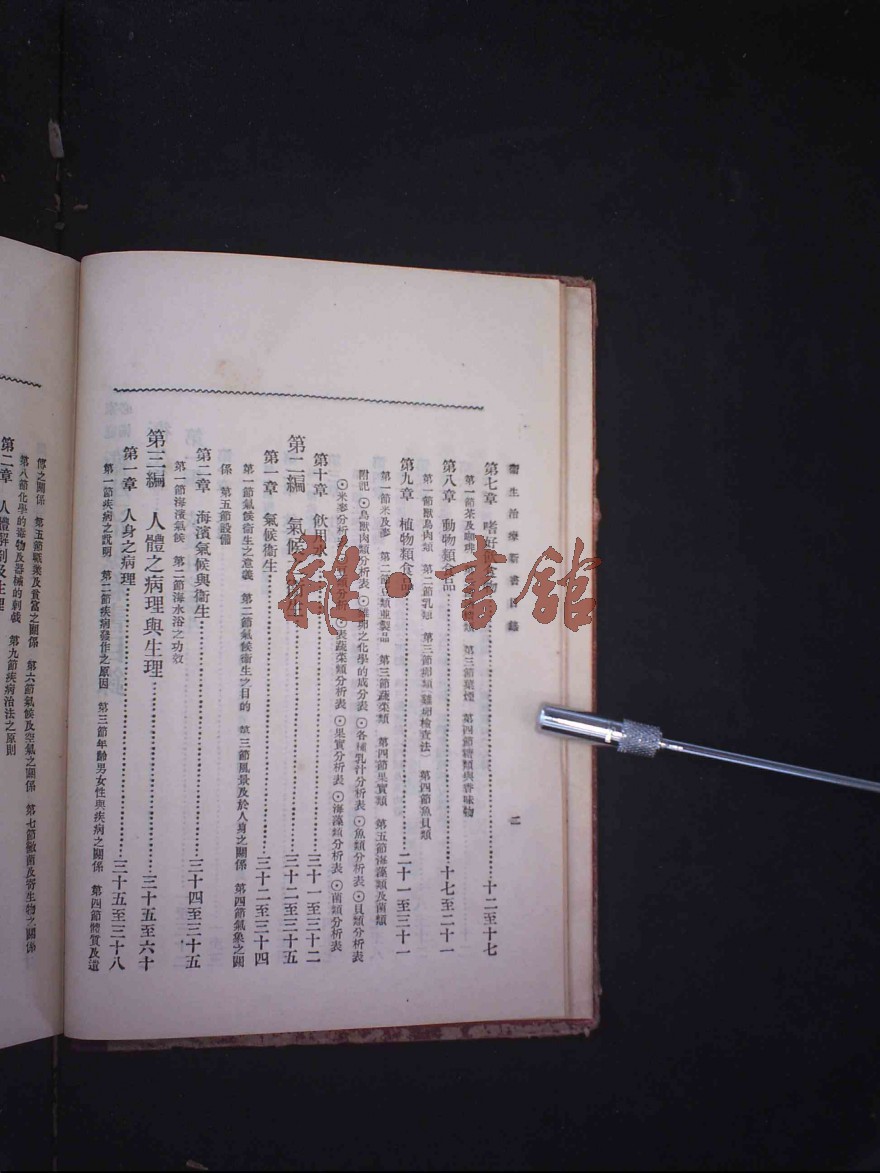 衞生治療新書目錄
二
第七章 嗜好品食物 十二至十七
第一節茶及咖啡 第三節葉煙 第四節糖類與香味物
第八章 動物類食品 十七至二十一
第一節獸鳥肉類 第二節乳類 第三節卵類(雞卵檢查法) 第四節魚貝類
第九章 植物類食品 二十一至三十一
第一節米及麥 第二節豆類並製品 第三節蔬菜類 第四節果實類 第五節海藻類及菌類
附記 ⊙鳥獸肉類分析表 ⊙雞卵之化學的成分表 ⊙各種乳汁分析表 ⊙魚類分析表 ⊙貝類分析表
⊙米麥分析表 ⊙豆類分析表 ⊙蔬菜類分析表 ⊙果實分析表 ⊙海藻類分析表 ⊙菌類分析表
第十章 飲用水 三十一至三十二
第二編 氣候衞生 三十二至三十五
第一章 氣候衞生 三十二至三十四
第一節氣候衞生之意義 第二節氣候衞生之目的 第三節風景及於人身之關係 第四節氣象之關
係 第五節設備
第二章 海濱氣候與衞生 三十四至三十五
第一節海濱氣候 第二節海水浴之功效
第三編 人體之病理與生理 三十五至六十
第一章 人身之病理 三十五至三十八
第一節疾病之說明 第二節疾病發作之原因 第三節年齡男女性與疾病之關係 第四節體質及遺
傳之關係 第五節職業及貧富之關係 第六節氣候及空氣之關係 第七節黴菌及寄生物之關係
第八節化學的毒物及器械的刺戟 第九節疾病治法之原則
第二章 人體解剖及生理
雜·書館